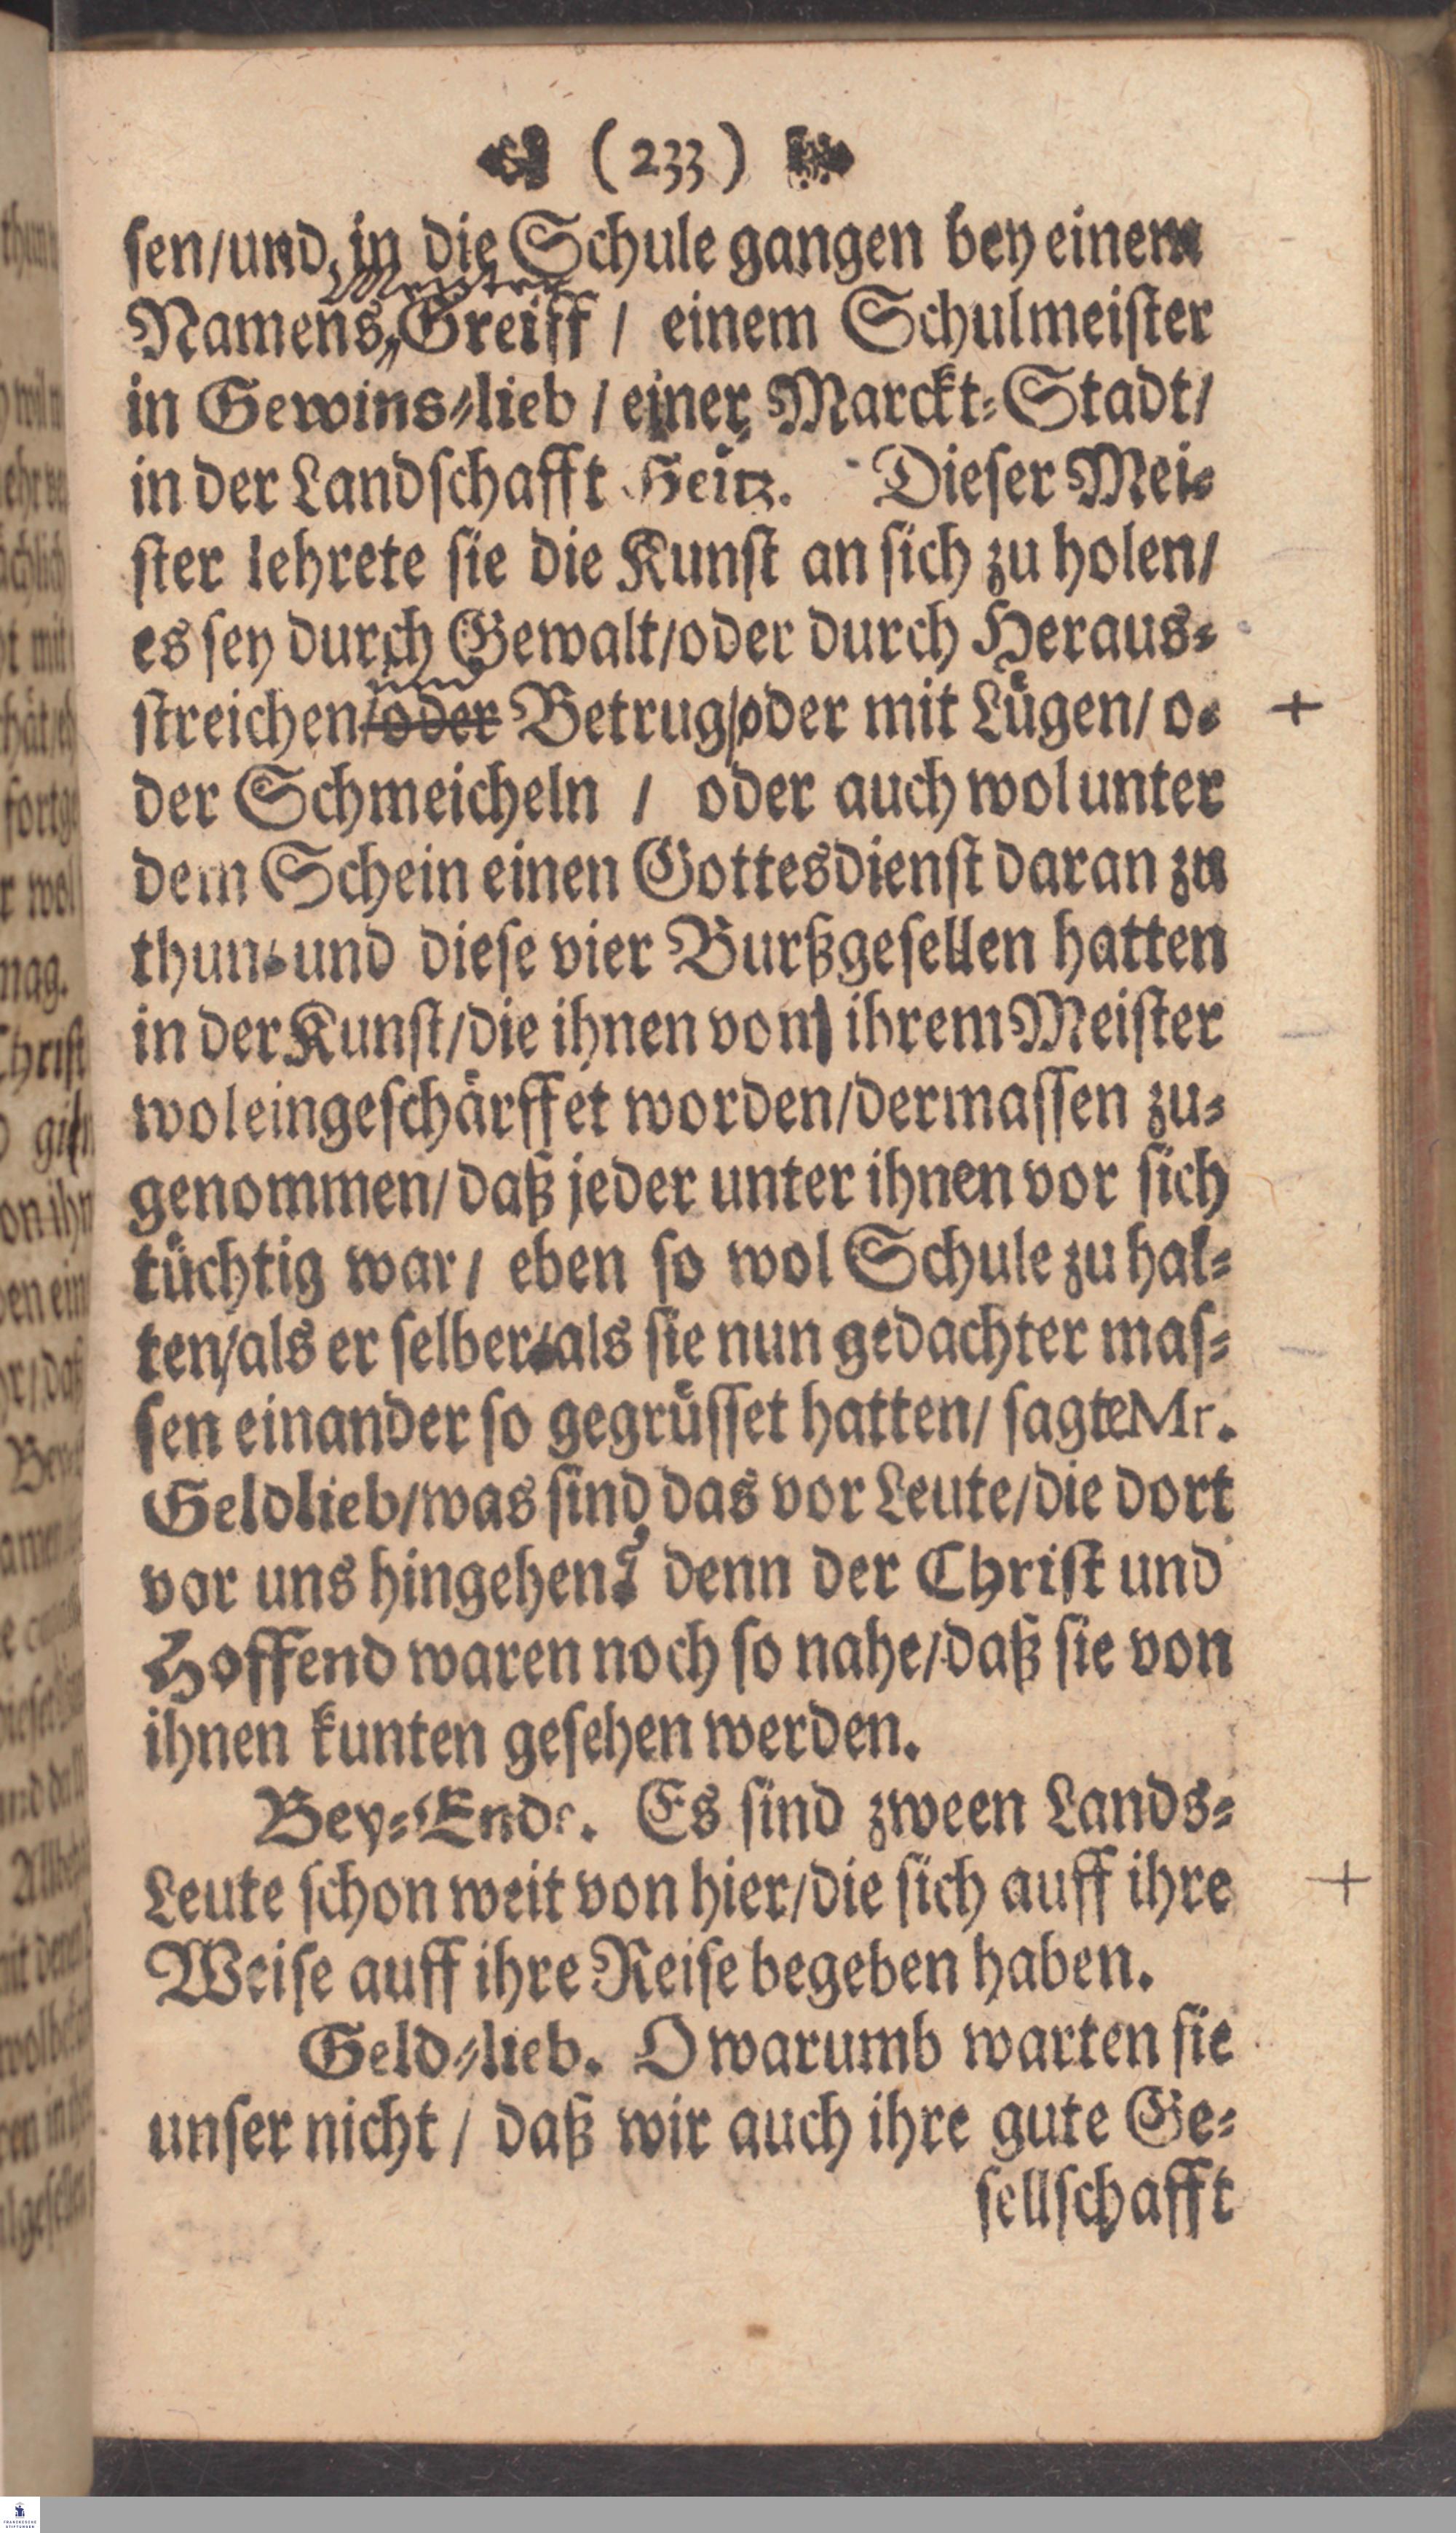 (233)
sen/und in die Schule gangen bey einem
Namens Greiff / einem Schulmeister
in Gewins-lieb / einer Marckt-Stadt/
in der Landschafft Heitz. Dieser Mei-
ster lehrete sie die Kunst an sich zu holen/
es sey durch Gewalt/oder durch Heraus-
und
streichen/oder Betrug/oder mit Lügen/ o-
der Schmeicheln / oder auch wol unter
dem Schein einen Gottesdienst daran zu
thun. und diese vier Burßgesellen hatten
in der Kunst/die ihnen von ihrem Meister
wol eingeschärffet worden/dermassen zu-
genommen/daß jeder unter ihnen vor sich
tüchtig war/ eben so wol Schule zu hal-
ten/als er selber. als sie nun gedachter mas-
sen einander so gegrüsset hatten/ sagte Mr.
Geldlieb/was sind das vor Leute/die dort
vor uns hingehen? denn der Christ und
Hoffend waren noch so nahe/daß sie von
ihnen kunten gesehen werden.
Bey-Ende. Es sind zween Lands-
Leute schon weit von hier/die sich auff ihre
Weise auff ihre Reise begeben haben.
Geld-lieb. O warumb warten sie
unser nicht / daß wir auch ihre gute Ge-
sellschafft